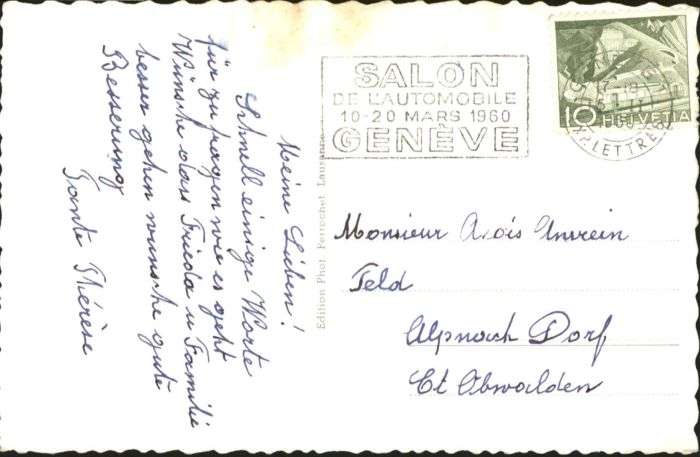 Meine Lieben!
Schnell einige Worte
für zu fragen wie es geht
Wünsche dass Frieda u Familie
besser gehen wünsche gute
Besserung
Tante Thérèse
Edition Phot. Perrochet Lausanne
SALON
DE L'AUTOMOBILE
10-20 MARS 1960
GENÈVE
10 HELVETIA
EXP. LETTRES
Monsieur Alois Amrein
Feld
Alpnach Dorf
Ct Obwalden